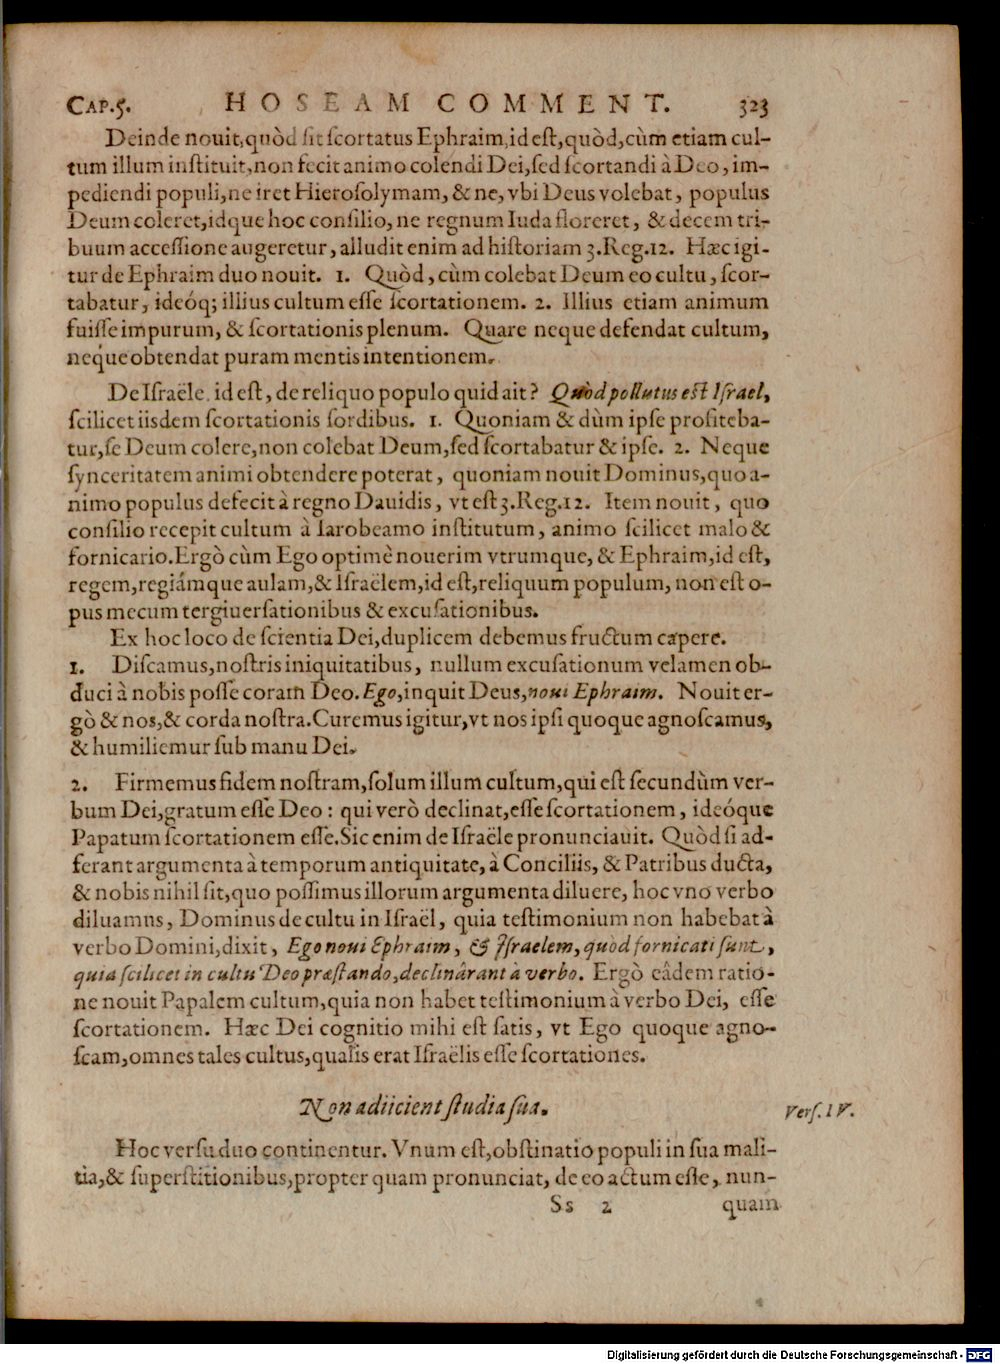 CAP.5. HOSEAM COMMENT. 323
Deinde nouit,quòd sit scortatus Ephraim,id est,quòd,cùm etiam cul-
tum illum instituit,non fecit animo colendi Dei,sed scortandi à Deo, im-
pediendi populi,ne iret Hierosolymam, & ne, vbi Deus volebat, populus
Deum coleret,idque hoc consilio, ne regnum Iuda floreret, & decem tri-
buum accessione augeretur, alludit enim ad historiam 3.Reg.12. Hæc igi-
tur de Ephraim duo nouit. 1. Quòd, cùm colebat Deum eo cultu, scor-
tabatur, ideóq; illius cultum esse scortationem. 2. Illius etiam animum
fuisse impurum, & scortationis plenum. Quare neque defendat cultum,
neque obtendat puram mentis intentionem.
De Israële. id est, de reliquo populo quid ait? Quòd pollutus est Israel,
scilicet iisdem scortationis sordibus. 1. Quoniam & dùm ipse profiteba-
tur,se Deum colere,non colebat Deum,sed scortabatur & ipse. 2. Neque
synceritatem animi obtendere poterat, quoniam nouit Dominus,quo a-
nimo populus defecit à regno Dauidis, vt est 3.Reg.12. Item nouit, quo
consilio recepit cultum à Iarobeamo institutum, animo scilicet malo &
fornicario.Ergò cùm Ego optimè nouerim vtrumque, & Ephraim,id est,
regem,regiámque aulam,& Israëlem,id est,reliquum populum, non est o-
pus mecum tergiuersationibus & excusationibus.
Ex hoc loco de scientia Dei,duplicem debemus fructum capere.
1. Discamus,nostris iniquitatibus, nullum excusationum velamen ob-
duci à nobis posse coram Deo. Ego,inquit Deus,noui Ephraim. Nouit er-
gò & nos,& corda nostra.Curemus igitur,vt nos ipsi quoque agnoscamus,
& humiliemur sub manu Dei.
2. Firmemus fidem nostram,solum illum cultum,qui est secundùm ver-
bum Dei,gratum esse Deo: qui verò declinat,esse scortationem, ideóque
Papatum scortationem esse.Sic enim de Israële pronunciauit. Quòd si ad-
ferant argumenta à temporum antiquitate, à Conciliis, & Patribus ducta,
& nobis nihil sit,quo possimus illorum argumenta diluere, hoc vno verbo
diluamus, Dominus de cultu in Israël, quia testimonium non habebat à
verbo Domini,dixit, Ego noui Ephraim, & Israelem, quòd fornicati sunt,
quia scilicet in cultu Deo præstando,declinârant à verbo. Ergò eâdem ratio-
ne nouit Papalem cultum,quia non habet testimonium à verbo Dei, esse
scortationem. Hæc Dei cognitio mihi est satis, vt Ego quoque agno-
scam,omnes tales cultus,qualis erat Israëlis esse scortationes.
Non adiicient studia sua. Vers. IV.
Hoc versu duo continentur. Vnum est,obstinatio populi in sua mali-
tia,& superstitionibus,propter quam pronunciat, de eo actum esse, nun-
Ss 2 quam
Digitalisierung gefördert durch die Deutsche Forschungsgemeinschaft - DFG